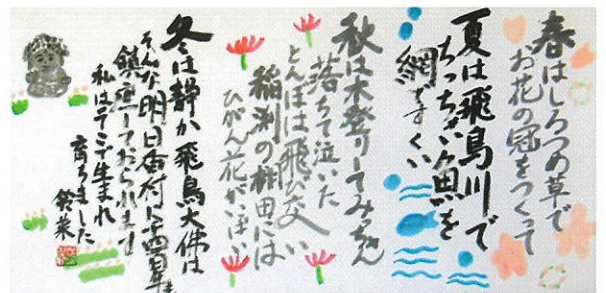 春はしろつめ草で
お花の冠をつくって
夏は飛鳥川で
ちっちゃい魚を
網ですくい
秋は木登りしてみっちゃん
落ちて泣いた
とんぼは飛び交い
稲渕の棚田には
ひがん花がいっぱい
冬は静か飛鳥大佛は
そんな明日香村に千四百年
鎮座しておられます
私はここで生まれ
育ちました